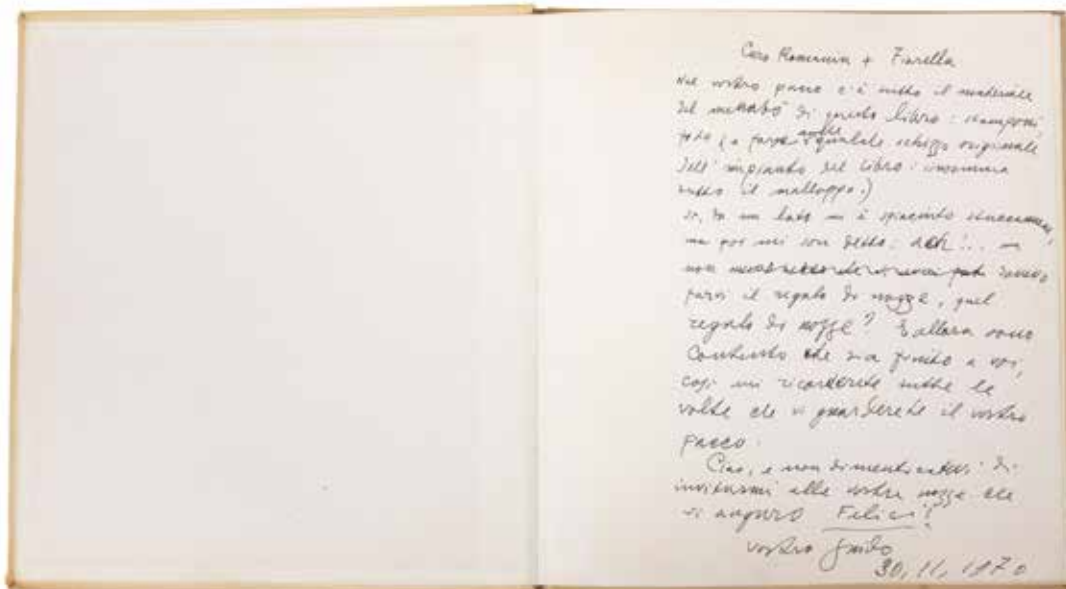 Caro Romania + Fiorella
Nel vostro pacco c'è tutto il materiale
del menabò di questo libro: stamponi,
foto (e forse anche qualche schizzo originale
dell'impianto del libro: insomma
tutto il malloppo.)
Sì, da un lato mi è spiaciuto
ma poi mi son detto: ach!..
non dovevo
farvi il regalo di nozze, quel
regalo di nozze? E allora sono
contento che sia finito a voi,
così mi ricorderete tutte le
volte che vi guarderete il vostro
pacco.
Ciao, e non dimenticatevi di
invitarmi alle vostre nozze che
vi auguro Felici!
vostro Guido
30.11.1970